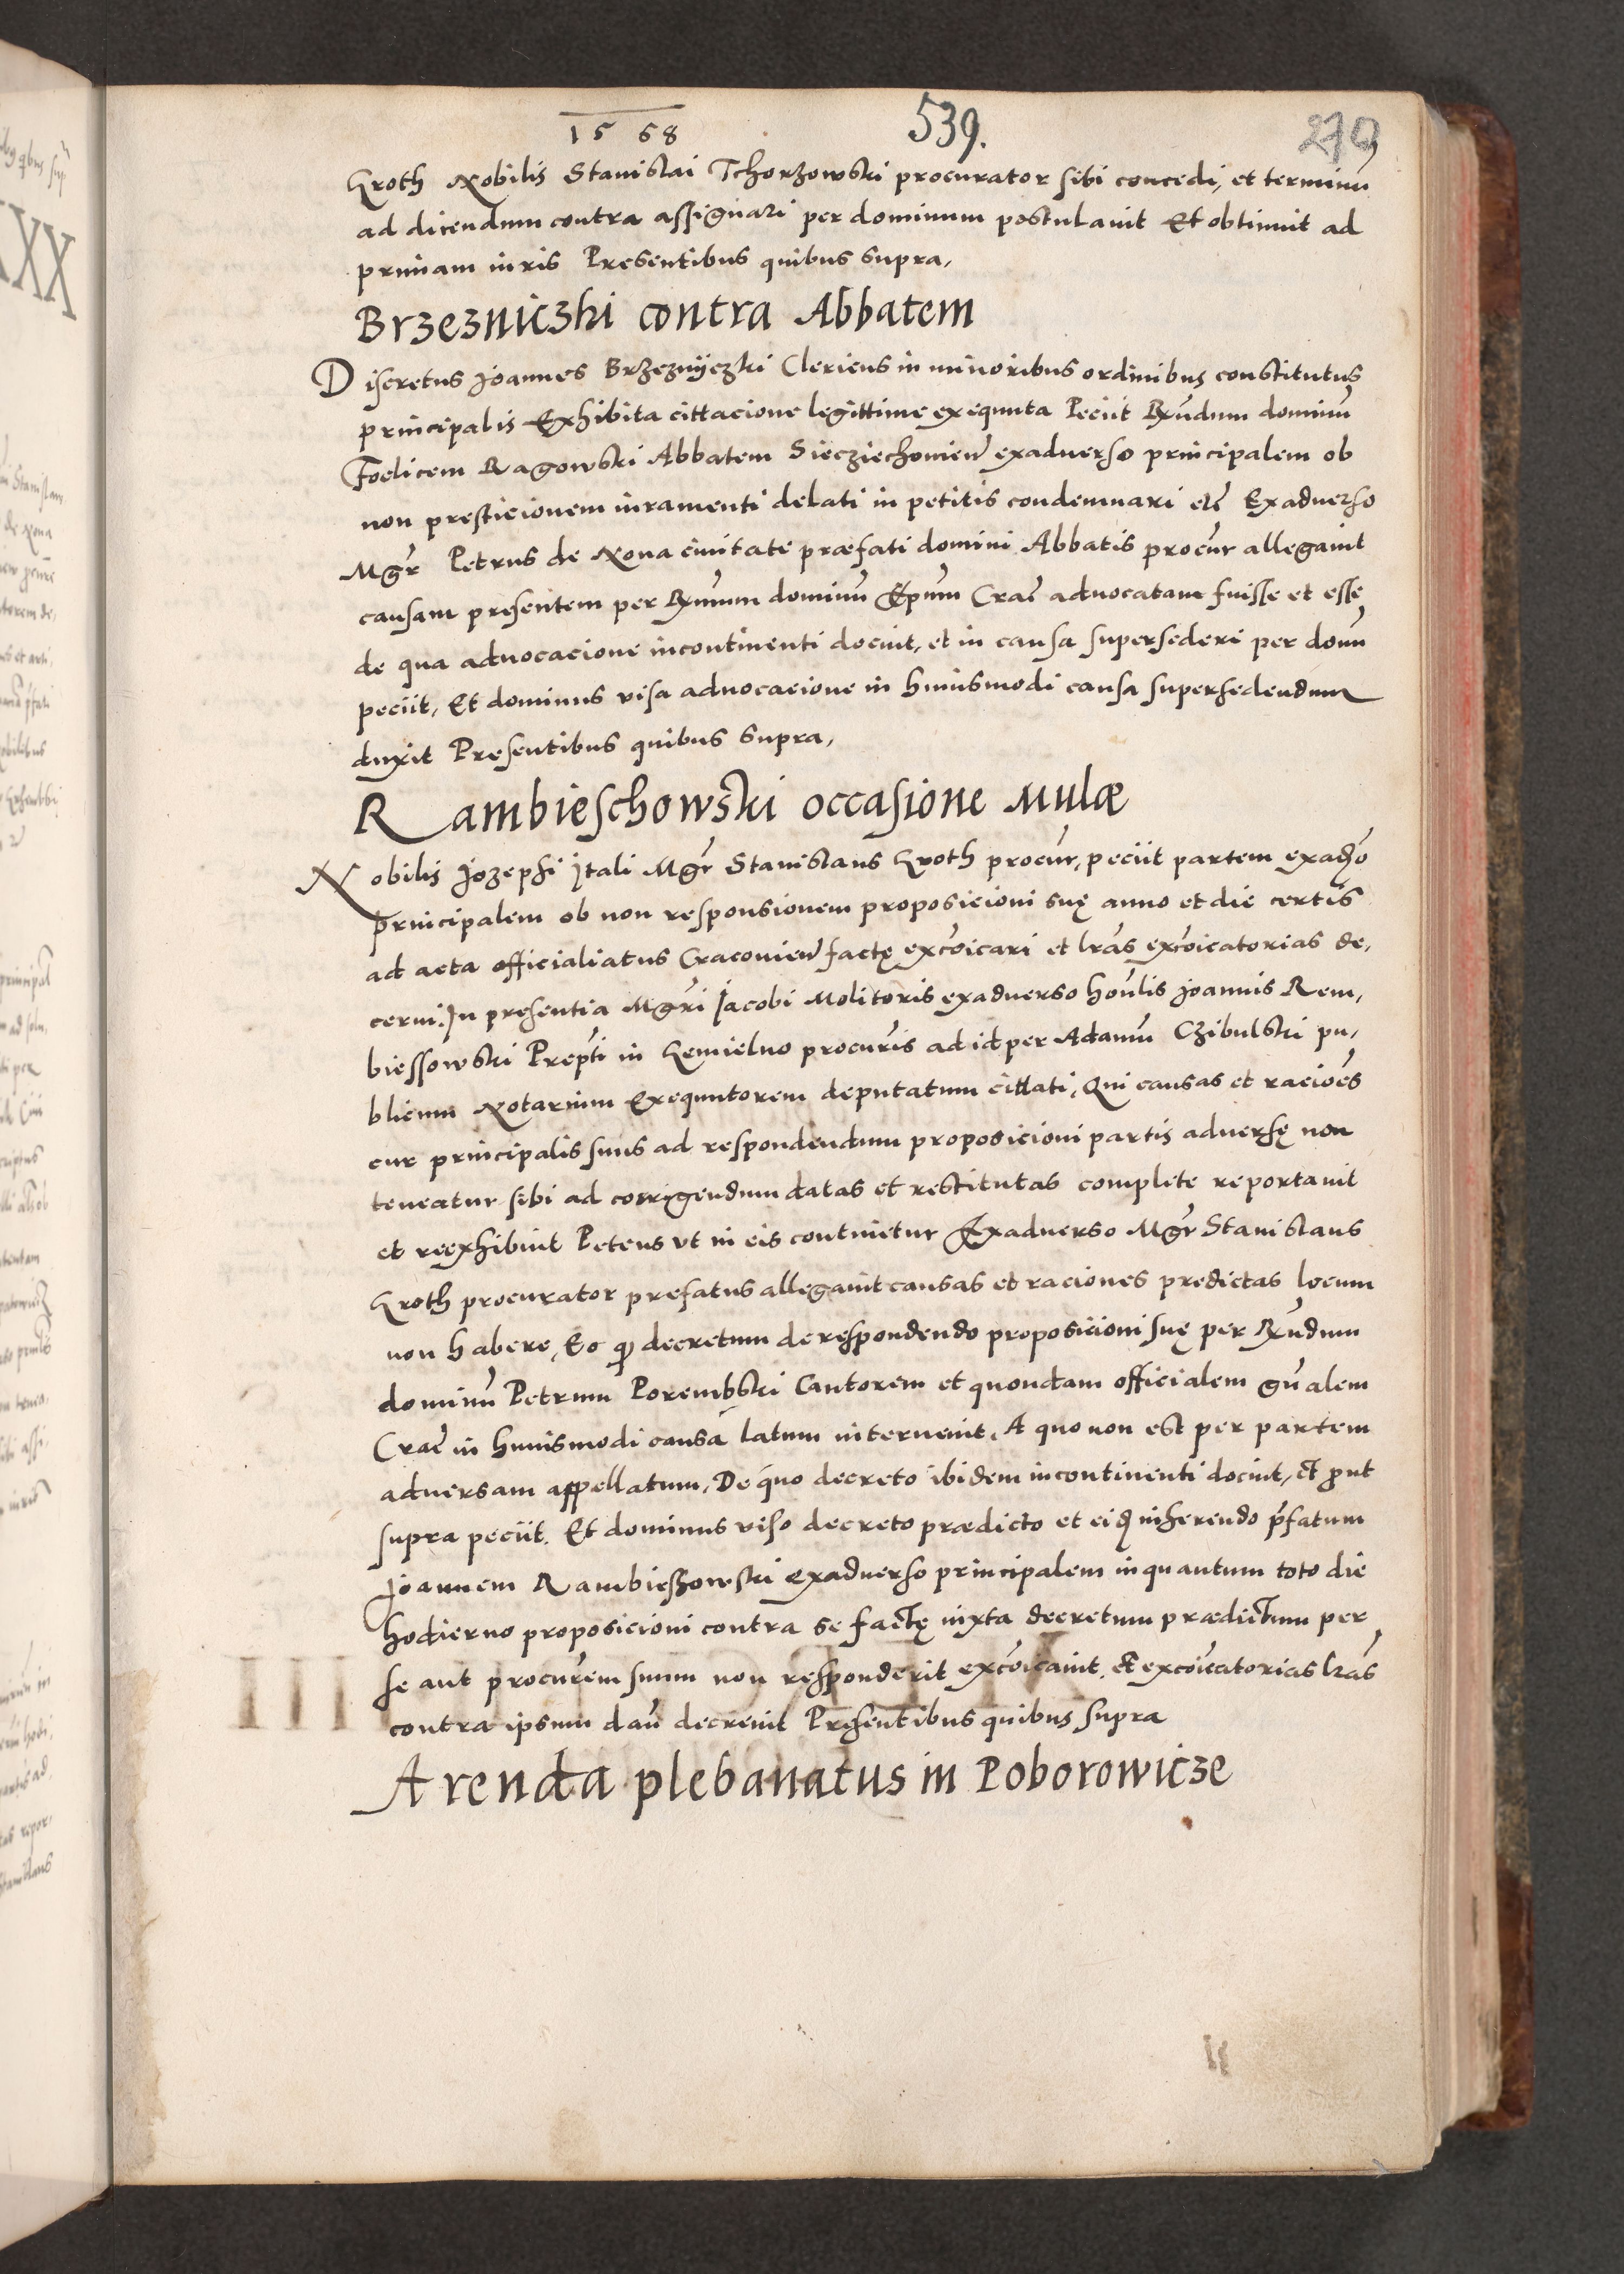 1568
539.
270
Kroth Nobilis Stanislai Tchorzowski procurator sibi concedi, et terminũ
ad dicendum contra assignari per dominum postulavit Et obtinuit ad
primam iuris Presentibus quibus supra,
Brzezniczki contra Abbatem
Discretus Joannes Brzeznÿczki Clericus in minoribus ordinibus constitutus
principalis Exhibita cittacione legittime exequuta Peciit Rñdum dominũ
Foelicem Ragowski Abbatem Siecziechovieñ exadverso principalem ob
non presticionem iuramenti delati in petitis condemnari etc̃ Exadverso
Mgr̃ Petrus de Nova civitate præfati domini Abbatis procur̃ allegavit
causam presentem per Rx̃mum dominũ Epũm Crac̃ advocatam fuisse et esse
de qua advocacione incontinenti docuit, et in causa supersederi per domũ
peciit, Et dominus visa advocacione in huiusmodi causa supersedendum
duxit Presentibus quibus supra,
Rambieschowski occasione Mulæ
Nobilis Jozephi Itali Mgr̃ Stanislaus Kroth procur̃, peciit partem exadṽo
principalem ob non responsionem proposicioni suę anno et die certis
ad acta officialiatus Cracovieñ factę excõicari et lr̃as excõicatorias de,
cerni. In presentia Mgr̃i Jacobi Molitoris exadverso honlis Joannis Rem,
biessowski Prepti in Xemielno procuris ad id per Adamũ Czibulski pu,
blicum Notarium Exequutorem deputatum cittati, Qui causas et raciões
cur principalis suus ad respondendum proposicioni partis adversę non
teneatur sibi ad corrigendum datas et restitutas complete reportavit
et reexhibuit Petens ut in eis continetur Exadverso Mgr̃ Stanislaus
Kroth procurator prefatus allegavit causas et raciones predictas locum
non habere, Eo qđ decretum de respondendo proposicioni suę per Rñdum
dominũ Petrum Porembski Cantorem et quondam officialem gñalem
Crac̃ in huiusmodi causa latum intervenit, A quo non est per partem
adversam appellatum, De quo decreto ibidem incontinenti docuit, et prout
supra peciit. Et dominus viso decreto prædicto et eidẽ inherendo p̃fatum
Joannem Rambieszowski exadverso principalem inquantum toto die
hodierno proposicioni contra se factę iuxta decretum prædictum per
se aut procurem suum non responderit excõicavit, et excõicatorias lr̃as
contra ipsum dañ decrevit Presentibus quibus supra
Arenda plebanatus in Poborowicze